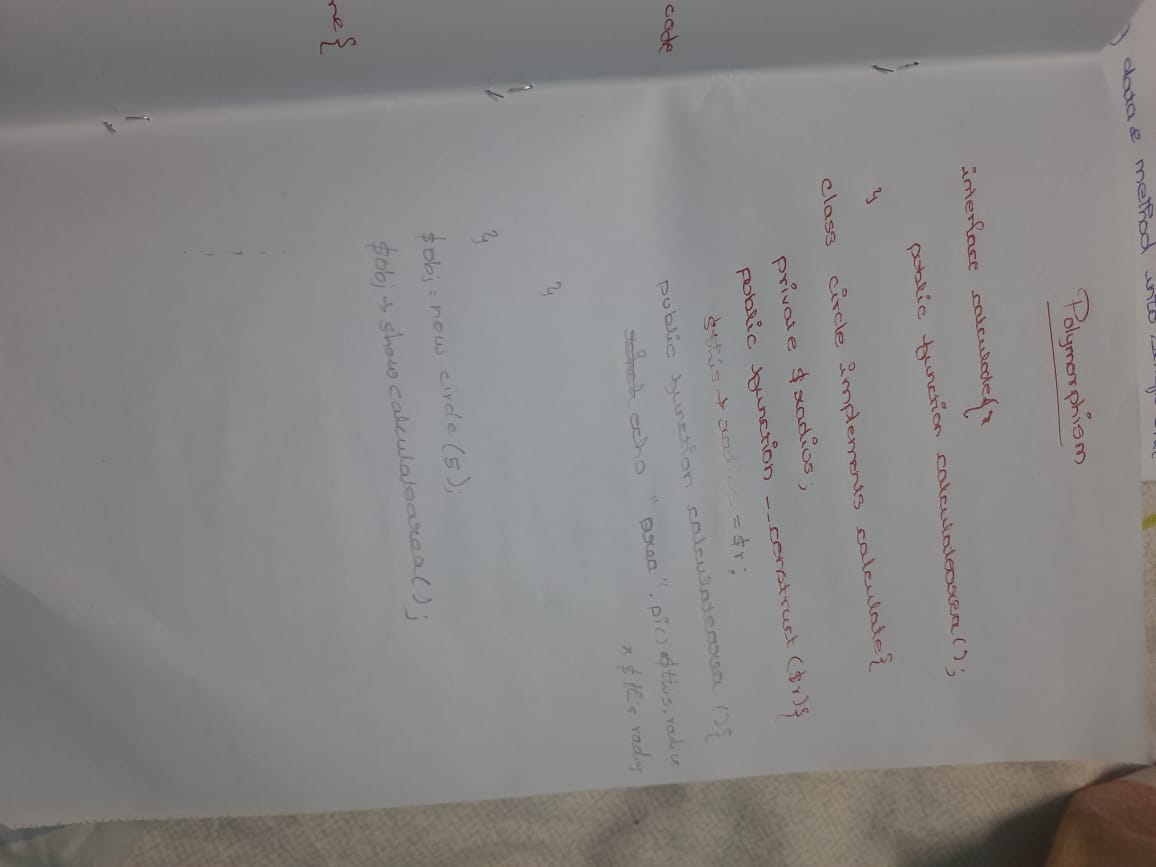 data & method into
Polymorphism
interface calculate{
public function calculatearea();
}
class circle implements calculate{
private $radius;
public function __construct($r){
$this→radius=$r;
public function calculatearea(){
echo "area".pi()*$this.radius
*$this.radius
}
}
$obj=new circle(5);
$obj→showcalculatearea();
code
ne{